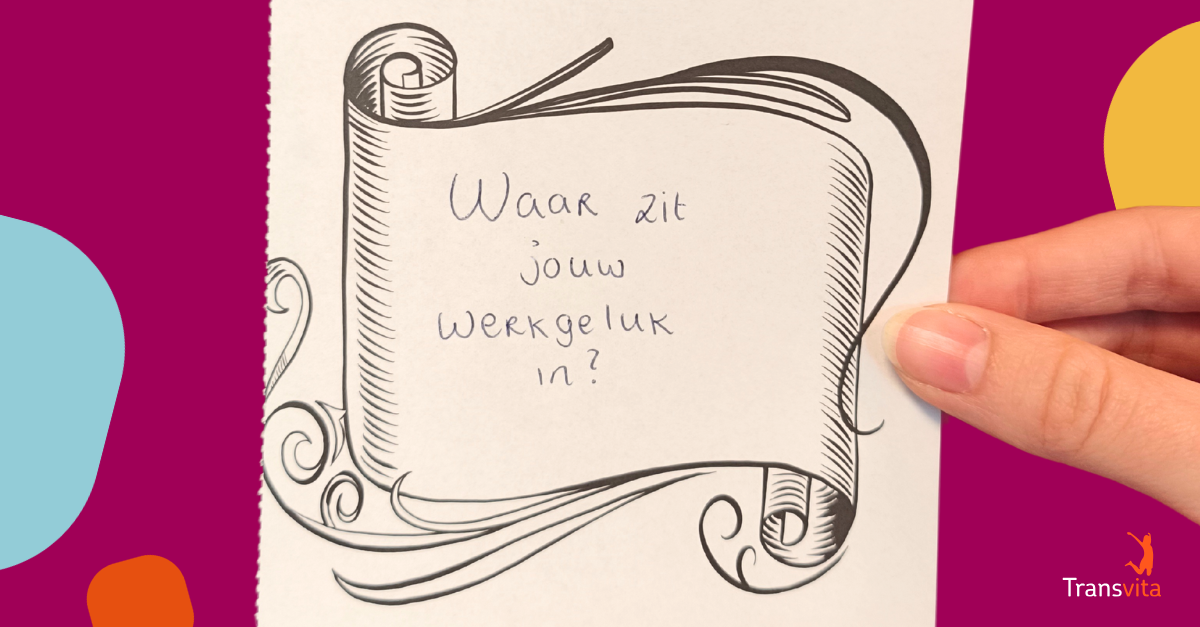 Waar zit
jouw
werkgeluk
in?
Transvita